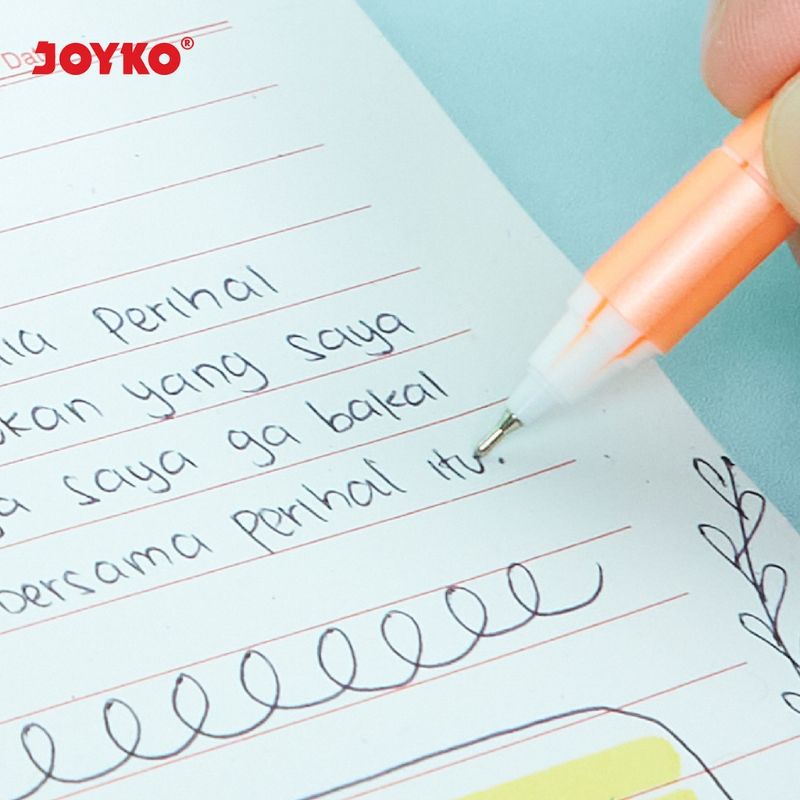 JOYKO®
Dat
perihal
kan yang saya
saya ga bakal
bersama perihal itu.